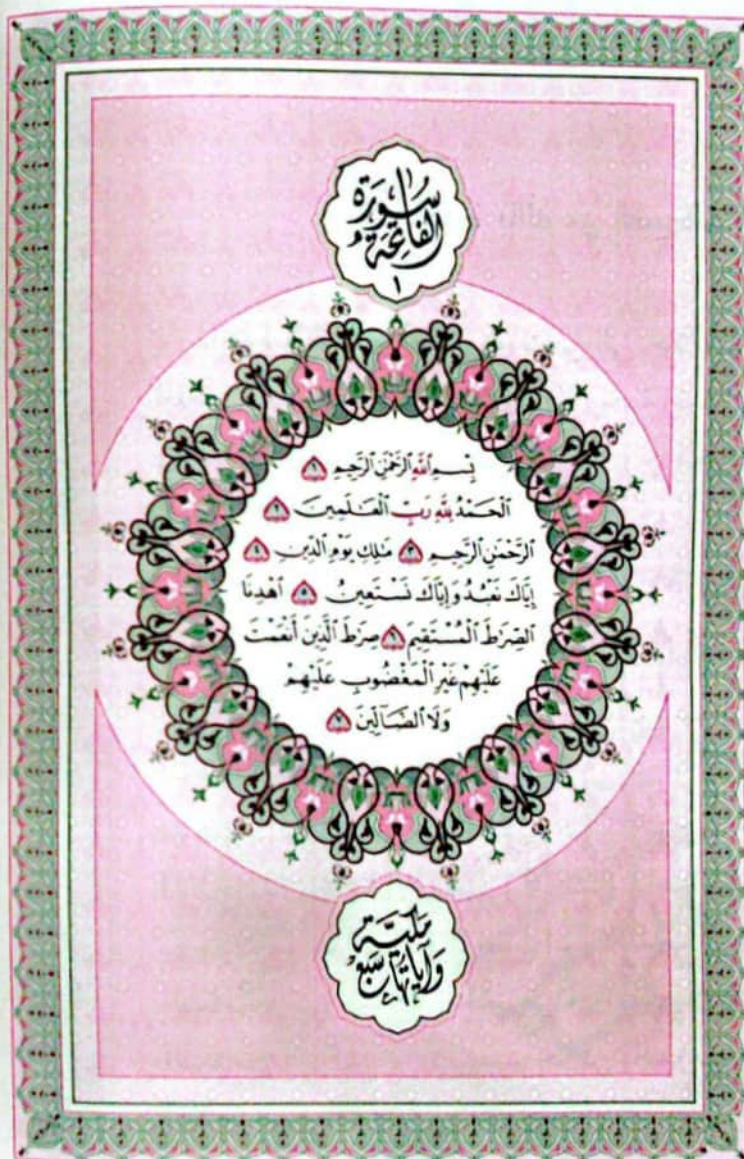 سُورَةُ
الفَاتِحَةِ
١
بِسْمِ ٱللَّهِ ٱلرَّحْمَٰنِ ٱلرَّحِيمِ ١
ٱلْحَمْدُ لِلَّهِ رَبِّ ٱلْعَٰلَمِينَ ٢
ٱلرَّحْمَٰنِ ٱلرَّحِيمِ ٣ مَٰلِكِ يَوْمِ ٱلدِّينِ ٤
إِيَّاكَ نَعْبُدُ وَإِيَّاكَ نَسْتَعِينُ ٥ ٱهْدِنَا
ٱلصِّرَٰطَ ٱلْمُسْتَقِيمَ ٦ صِرَٰطَ ٱلَّذِينَ أَنْعَمْتَ
عَلَيْهِمْ غَيْرِ ٱلْمَغْضُوبِ عَلَيْهِمْ
وَلَا ٱلضَّآلِّينَ ٧
مَكِّيَّة
وَآيَاتُهَا سَبْع